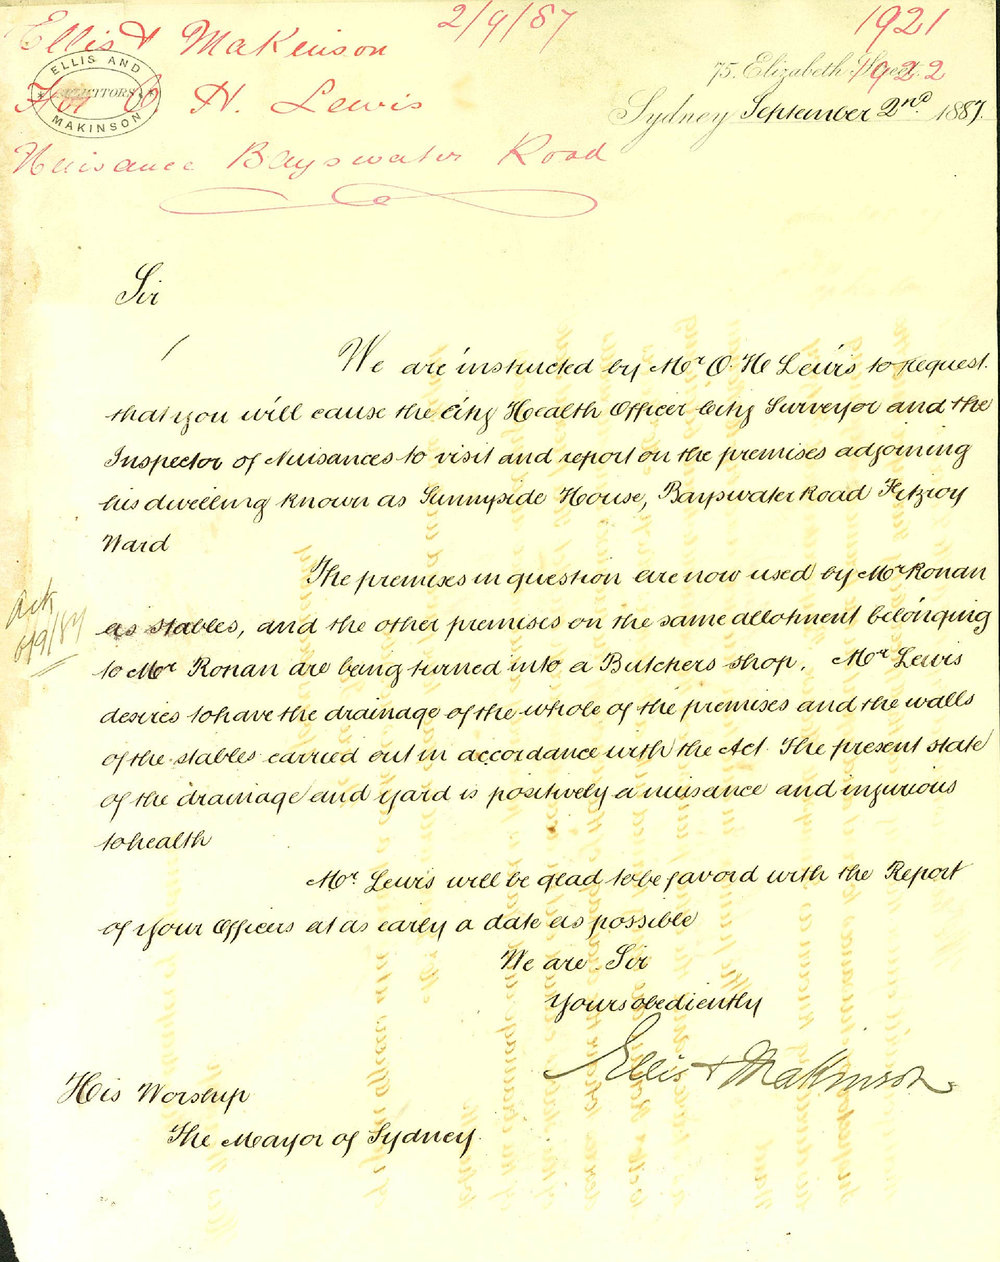 Ellis & Makinson 2/9/87 1921
922
For O. H. Lewis
Nuisance Bayswater Road
ELLIS AND MAKINSON
SOLICITORS
75. Elizabeth Street.
Sydney September 2nd 1887.
Sir
We are instructed by Mr O. H Lewis to request
that you will cause the City Health Officer City Surveyor and the
Inspector of Nuisances to visit and report on the premises adjoining
his dwelling known as Sunnyside House, Bayswater Road Fitzroy
Ward
The premises in question are now used by Mr Ronan
as stables, and the other premises on the same allotment belonging
to Mr Ronan are being turned into a Butchers shop. Mr Lewis
desires to have the drainage of the whole of the premises and the walls
of the stables carried out in accordance with the Act. The present state
of the drainage and yard is positively a nuisance and injurious
to health
Ack
6/9/87
Mr Lewis will be glad to be favord with the Report
of your Officers at as early a date as possible
We are Sir
Yours obediently
Ellis & Makinson
His Worship
The Mayor of Sydney.